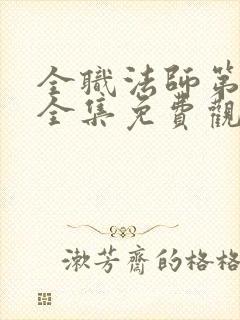 全職法師第
全集免費觀
漱芳齋的格格